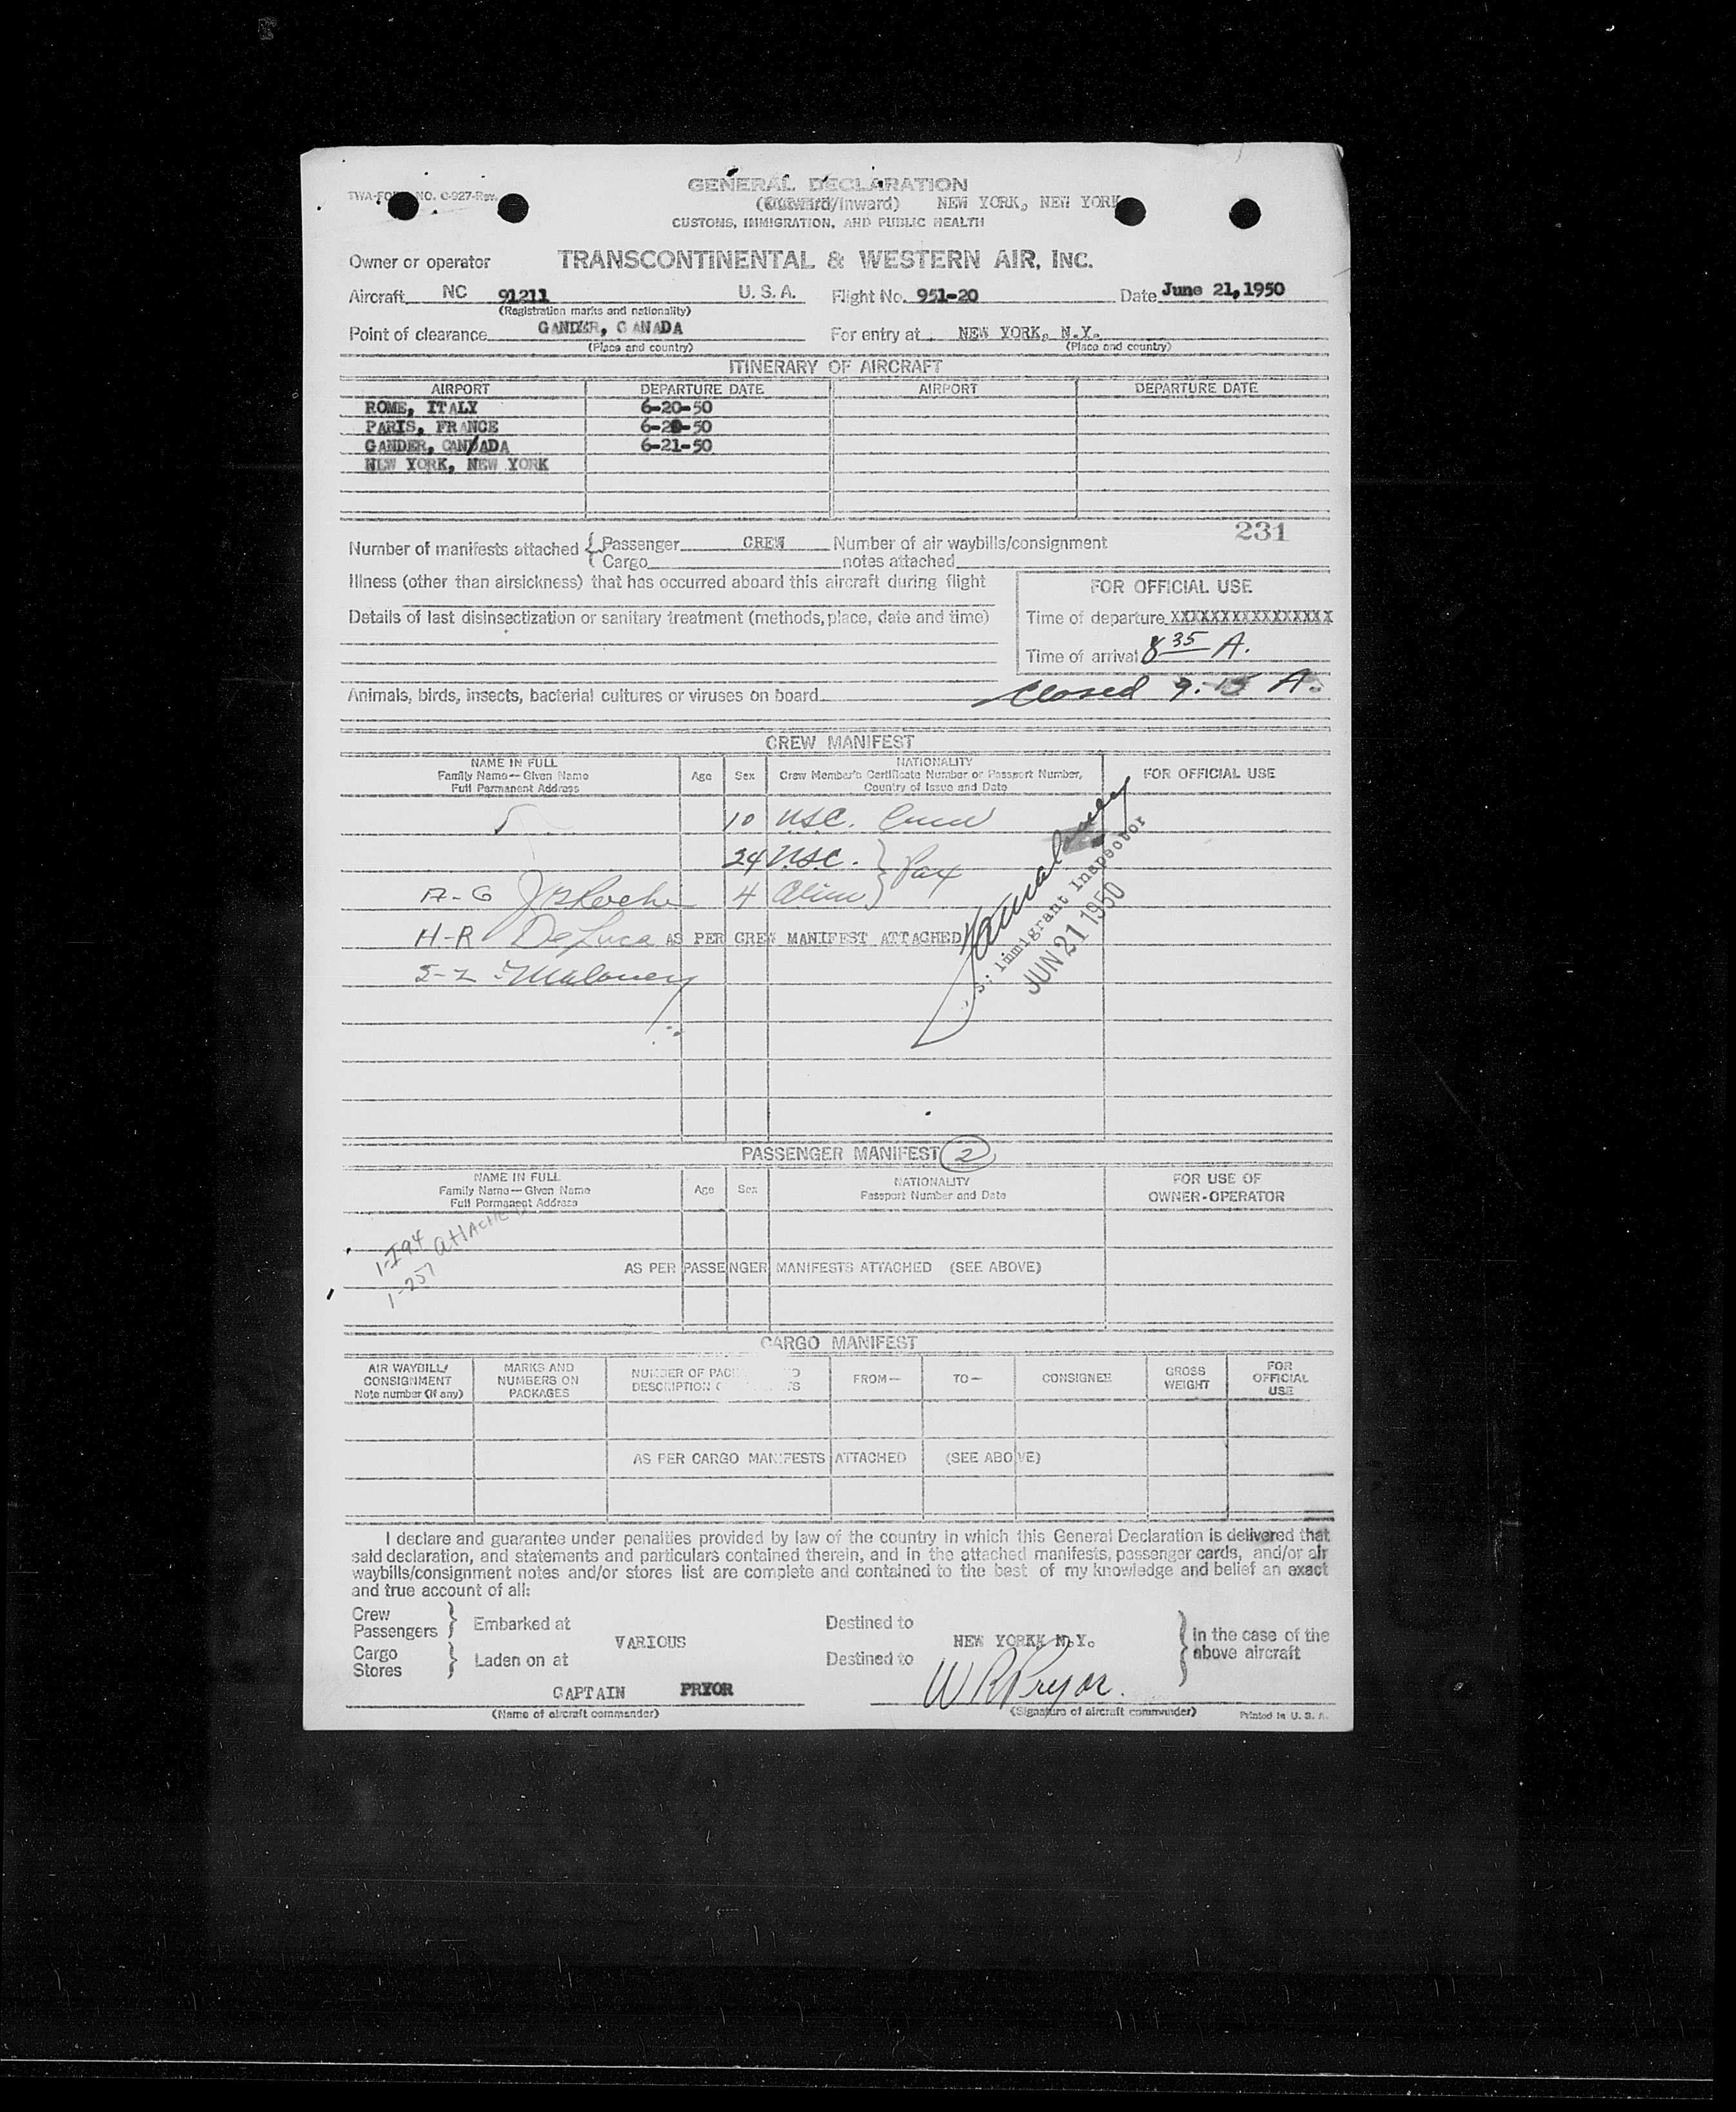 TWA-FO NO. C-927-Rev.
GENERAL DECLARATION
(Outward/Inward) NEW YORK, NEW YORK
CUSTOMS, IMMIGRATION, AND PUBLIC HEALTH
Owner or operator TRANSCONTINENTAL & WESTERN AIR, INC.
Aircraft NC 91211 U. S. A. Flight No. 951-20 Date June 21, 1950
(Registration marks and nationality)
Point of clearance GANDER, CANADA For entry at NEW YORK, N.Y.
(Place and country) (Place and country)
ITINERARY OF AIRCRAFT
AIRPORT DEPARTURE DATE AIRPORT DEPARTURE DATE
ROME, ITALY 6-20-50
PARIS, FRANCE 6-20-50
GANDER, CANADA 6-21-50
NEW YORK, NEW YORK
231
Number of manifests attached { Passenger CREW Number of air waybills/consignment
Cargo notes attached
Illness (other than airsickness) that has occurred aboard this aircraft during flight
FOR OFFICIAL USE
Details of last disinsectization or sanitary treatment (methods, place, date and time)
Time of departure XXXXXXXXXXXXXXXX
Time of arrival 8 35 A.
Animals, birds, insects, bacterial cultures or viruses on board
Closed 9:15 A.
CREW MANIFEST
NAME IN FULL
Family Name—Given Name
Full Permanent Address
Age Sex
NATIONALITY
Crew Member's Certificate Number or Passport Number,
Country of Issue and Date
FOR OFFICIAL USE
10 USC. Crew
24 USC. } Pax
A-G Roche 4 Alien }
H-R DeLuca AS PER CREW MANIFEST ATTACHED
S-Z Maloney
Maloney
U.S. Immigrant Inspector
JUN 21 1950
PASSENGER MANIFEST 2
NAME IN FULL
Family Name—Given Name
Full Permanent Address
Age Sex
NATIONALITY
Passport Number and Date
FOR USE OF
OWNER-OPERATOR
1-I94 attached
1-257
AS PER PASSENGER MANIFESTS ATTACHED (SEE ABOVE)
CARGO MANIFEST
AIR WAYBILL/
CONSIGNMENT
Note number (if any)
MARKS AND
NUMBERS ON
PACKAGES
NUMBER OF
DESCRIPTION
FROM— TO— CONSIGNEE
GROSS
WEIGHT
FOR
OFFICIAL
USE
AS PER CARGO MANIFESTS ATTACHED (SEE ABOVE)
I declare and guarantee under penalties provided by law of the country in which this General Declaration is delivered that
said declaration, and statements and particulars contained therein, and in the attached manifests, passenger cards, and/or air
waybills/consignment notes and/or stores list are complete and contained to the best of my knowledge and belief an exact
and true account of all:
Crew
Passengers } Embarked at Destined to
VARIOUS NEW YORKK N.Y.
Cargo
Stores } Laden on at Destined to
} in the case of the
above aircraft
CAPTAIN PRYOR W R Pryor.
(Name of aircraft commander) (Signature of aircraft commander) Printed in U. S. A.